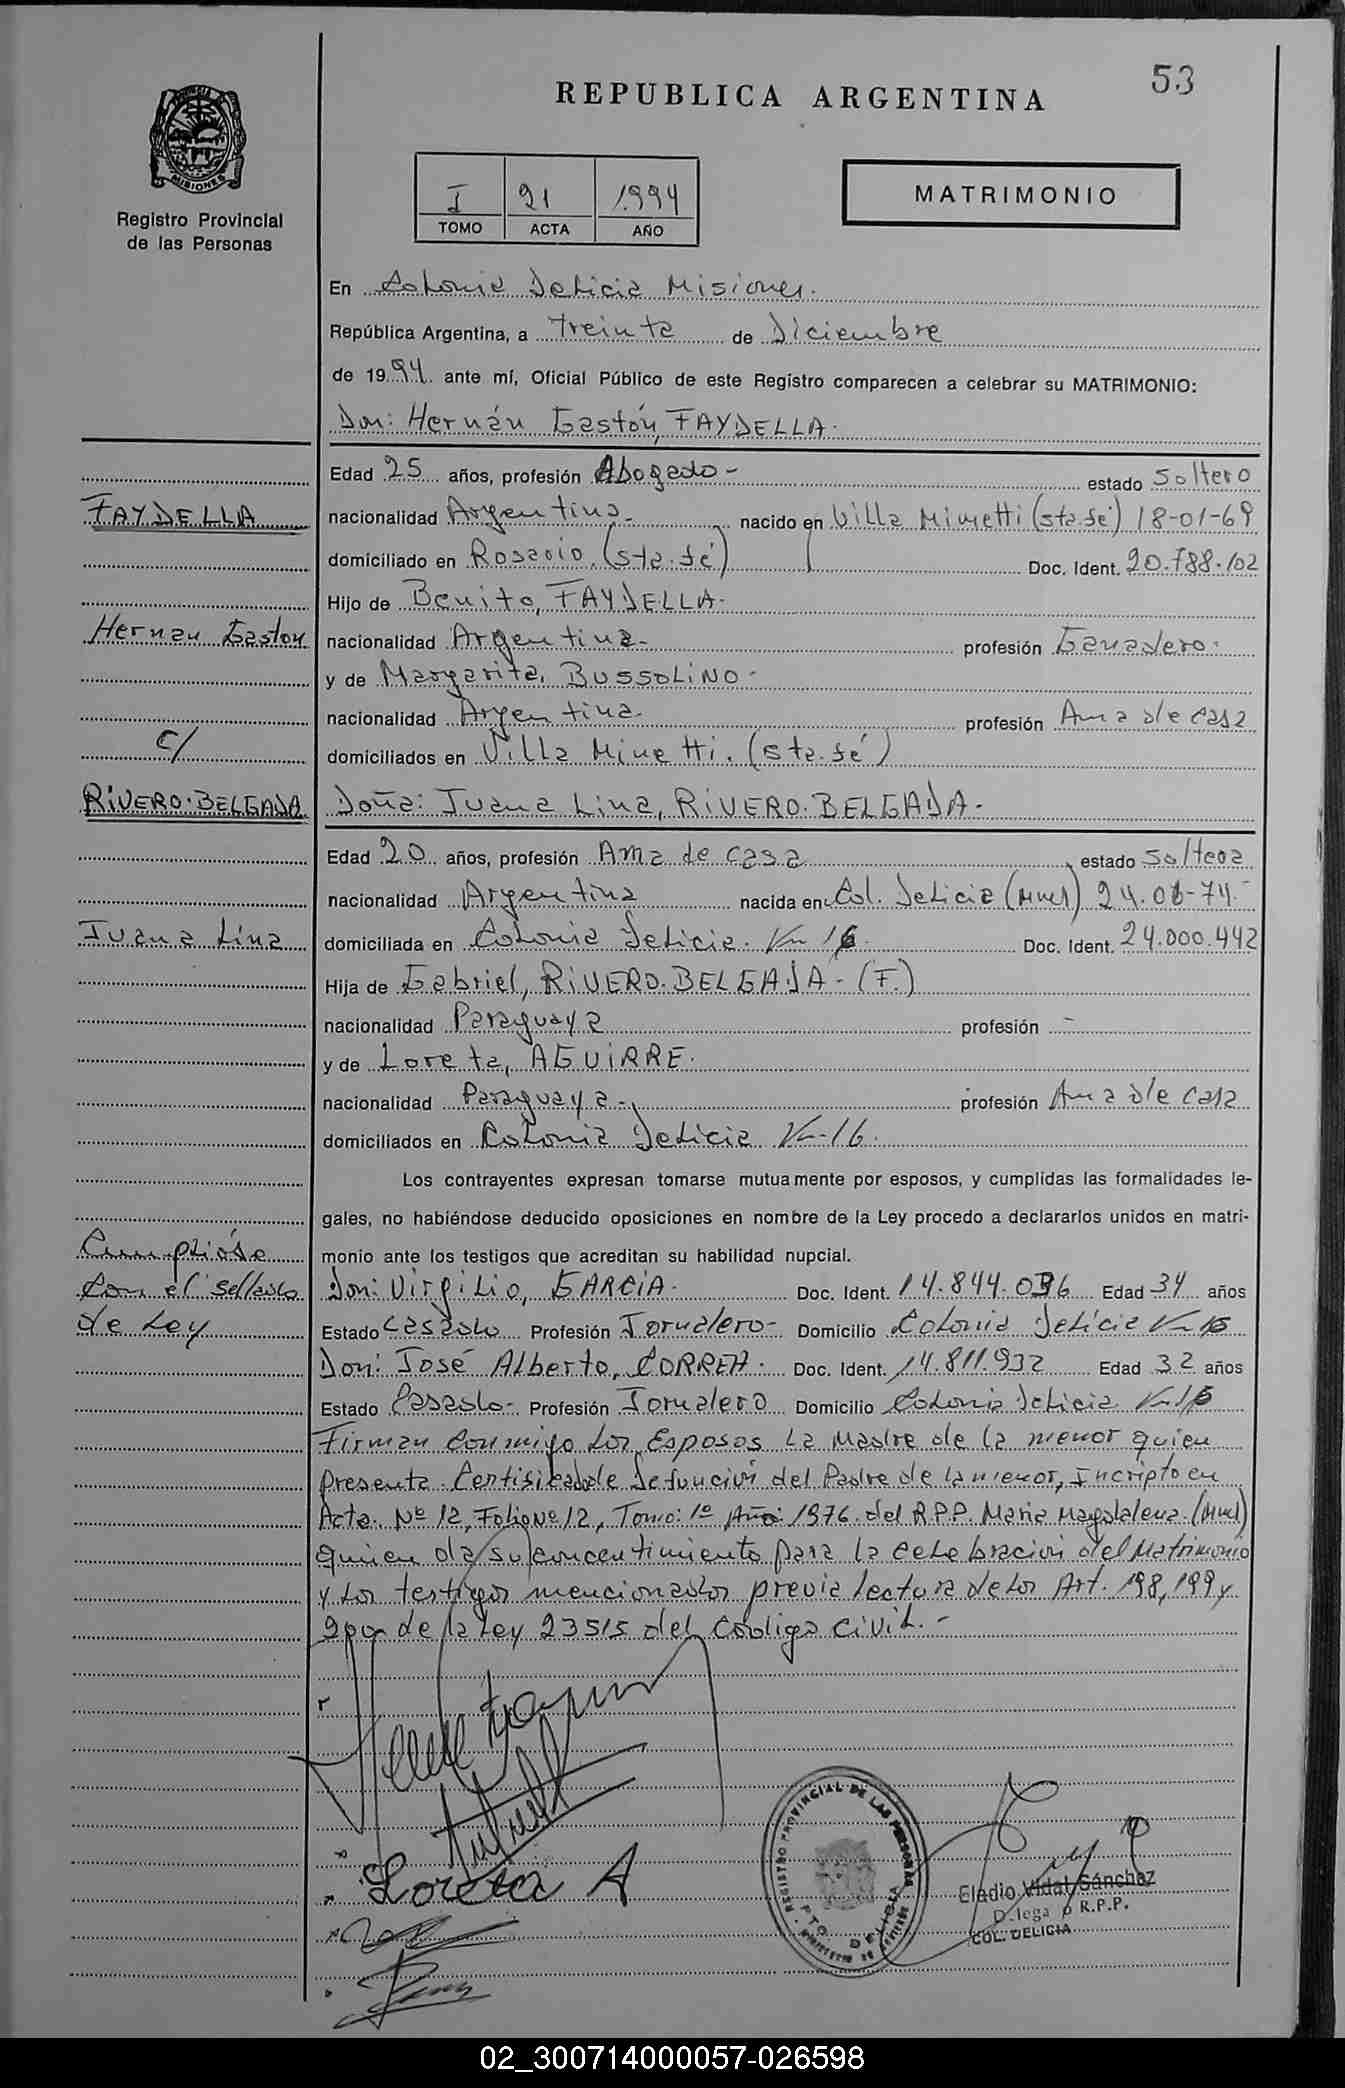 53
REPUBLICA ARGENTINA
PROVINCIA DE
MISIONES
Registro Provincial
de las Personas
I 21 1994
TOMO ACTA AÑO
MATRIMONIO
En Colonia Delicia Misiones.
República Argentina, a treinta de Diciembre
de 1994 ante mí, Oficial Público de este Registro comparecen a celebrar su MATRIMONIO:
Don: Hernán Gastón, FAYDELLA.
Edad 25 años, profesión Abogado - estado Soltero
FAYDELLA nacionalidad Argentina - nacido en Villa Minetti (sta.fé) 18-01-69
domiciliado en Rosario. (sta.fé) Doc. Ident. 20.788.102
Hijo de Benito, FAYDELLA.
Hernan Gaston nacionalidad Argentina - profesión Ganadero.
y de Margarita, BUSSOLINO -
nacionalidad Argentina profesión Ama de casa
C/ domiciliados en Villa Minetti. (sta.fé)
RIVERO.BELGADA Doña: Juana Lina, RIVERO.BELGADA -
Edad 20 años, profesión Ama de casa estado Soltera
nacionalidad Argentina nacida en Col. Delicia (Mnes) 24.06-74.
Juana Lina domiciliada en Colonia Delicia. Km 16. Doc. Ident. 24.000.442
Hija de Gabriel, RIVERO.BELGADA - (F.)
nacionalidad Paraguaya profesión -
y de Loreta, AGUIRRE.
nacionalidad Paraguaya - profesión Ama de casa
domiciliados en Colonia Delicia Km-16.
Los contrayentes expresan tomarse mutuamente por esposos, y cumplidas las formalidades le-
gales, no habiéndose deducido oposiciones en nombre de la Ley procedo a declararlos unidos en matri-
Cumplióse monio ante los testigos que acreditan su habilidad nupcial.
Con el sellado Don: Virgilio, GARCIA. Doc. Ident. 14.844.036 Edad 34 años
de Ley Estado Casado Profesión Jornalero - Domicilio Colonia Delicia Km 16
Don: José Alberto, CORREA. Doc. Ident. 14.811.932 Edad 32 años
Estado Casado - Profesión Jornalero Domicilio Colonia Delicia Km 16
Firman conmigo los Esposos la Madre de la menor quien
presenta Certificado de Defunción del Padre de la menor, Incripto en
Acta Nº 12, Folio Nº 12, Tomo: 1º Año 1976. del R.P.P. Maria Magdalena. (Mnes)
quien da su concentimiento para la celebracion del Matrimonio
y los testigos mencionados previa lectura de los Art. 198, 199 y
200 de la Ley 23515 del Codigo Civil. -
Loreta A
REGISTRO PROVINCIAL DE LAS PERSONAS
PTO. DELICIA
Eladio Vidal Sánchez
Delegado R.P.P.
COL. DELICIA
02_300714000057-026598